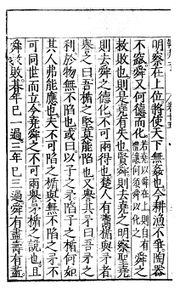 明察在上位將使天下無姦也今耕漁不爭陶器
不窳舜又何德而化舜之
救敗也則是堯有失也賢舜則去堯之明察聖堯
則去舜之德化不可兩得也楚人有鬻楯與矛者
譽之曰吾楯之堅莫能陷也又譽其矛曰吾矛之
利於物無不陷也或曰以子之矛陷子之楯何如
其人弗能應也夫不可陷之楯與無不陷之矛不
可同世而立今堯舜之不可兩譽矛楯之說也且
舜救敗朞年已一過三年已三過舜有盡壽有盡